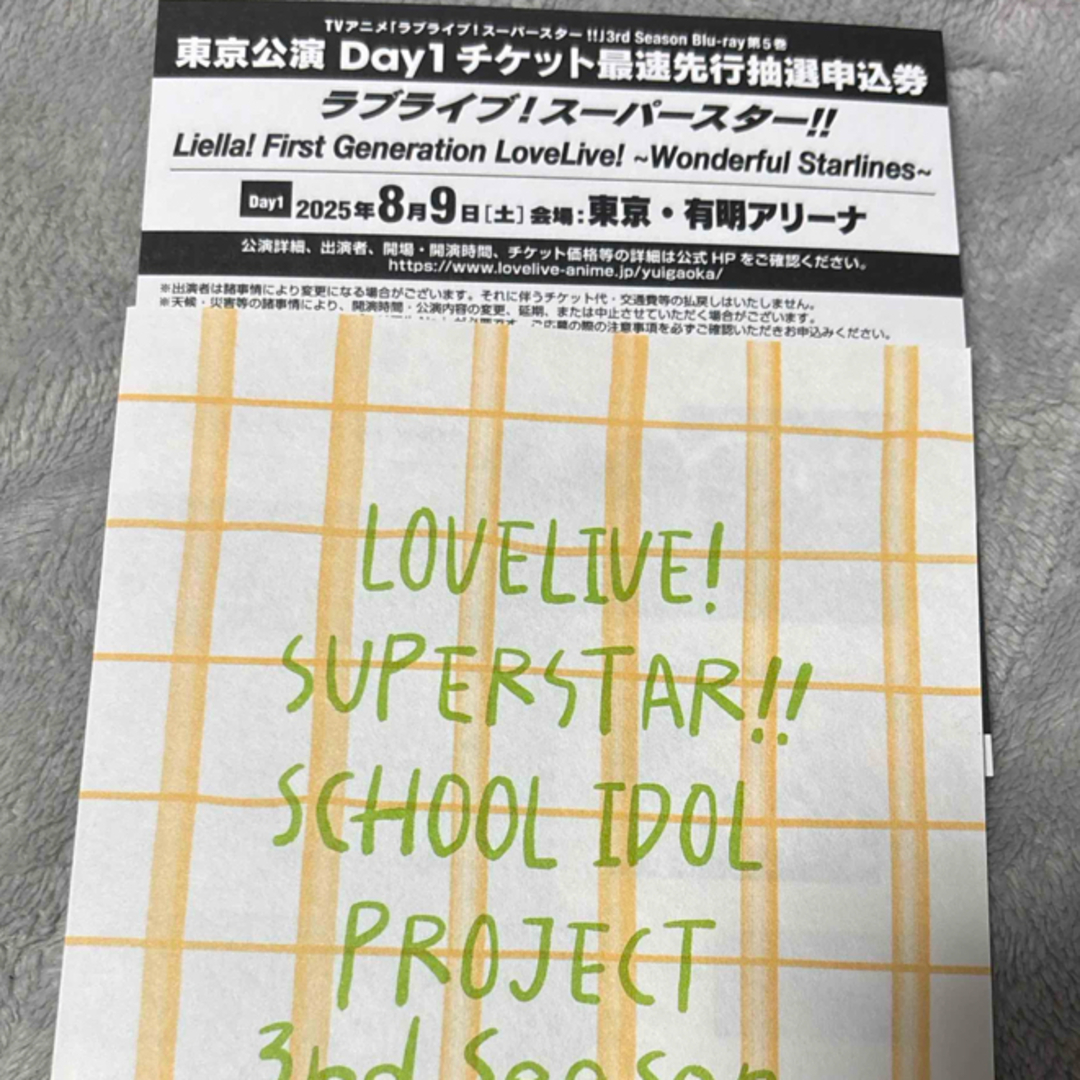 TVアニメ「ラブライブ！スーパースター!!」3rd Season Blu-ray第5巻
東京公演 Day1 チケット最速先行抽選申込券
ラブライブ！スーパースター!!
Liella! First Generation LoveLive! ~Wonderful Starlines~
Day1 2025年8月9日［土］会場：東京・有明アリーナ
公演詳細、出演者、開場・開演時間、チケット価格等の詳細は公式 HP をご確認ください。
https://www.lovelive-anime.jp/yuigaoka/
※出演者は諸事情により変更になる場合がございます。それに伴うチケット代・交通費等の払戻しはいたしません。
※天候・災害等の諸事情により、開演時間・公演内容の変更、延期、または中止させていただく場合がございます。
が必要です。ご応募の際の注意事項を必ずご確認いただきお申込みください。
LOVELIVE!
SUPERSTAR!!
SCHOOL IDOL
PROJECT
3rd Season